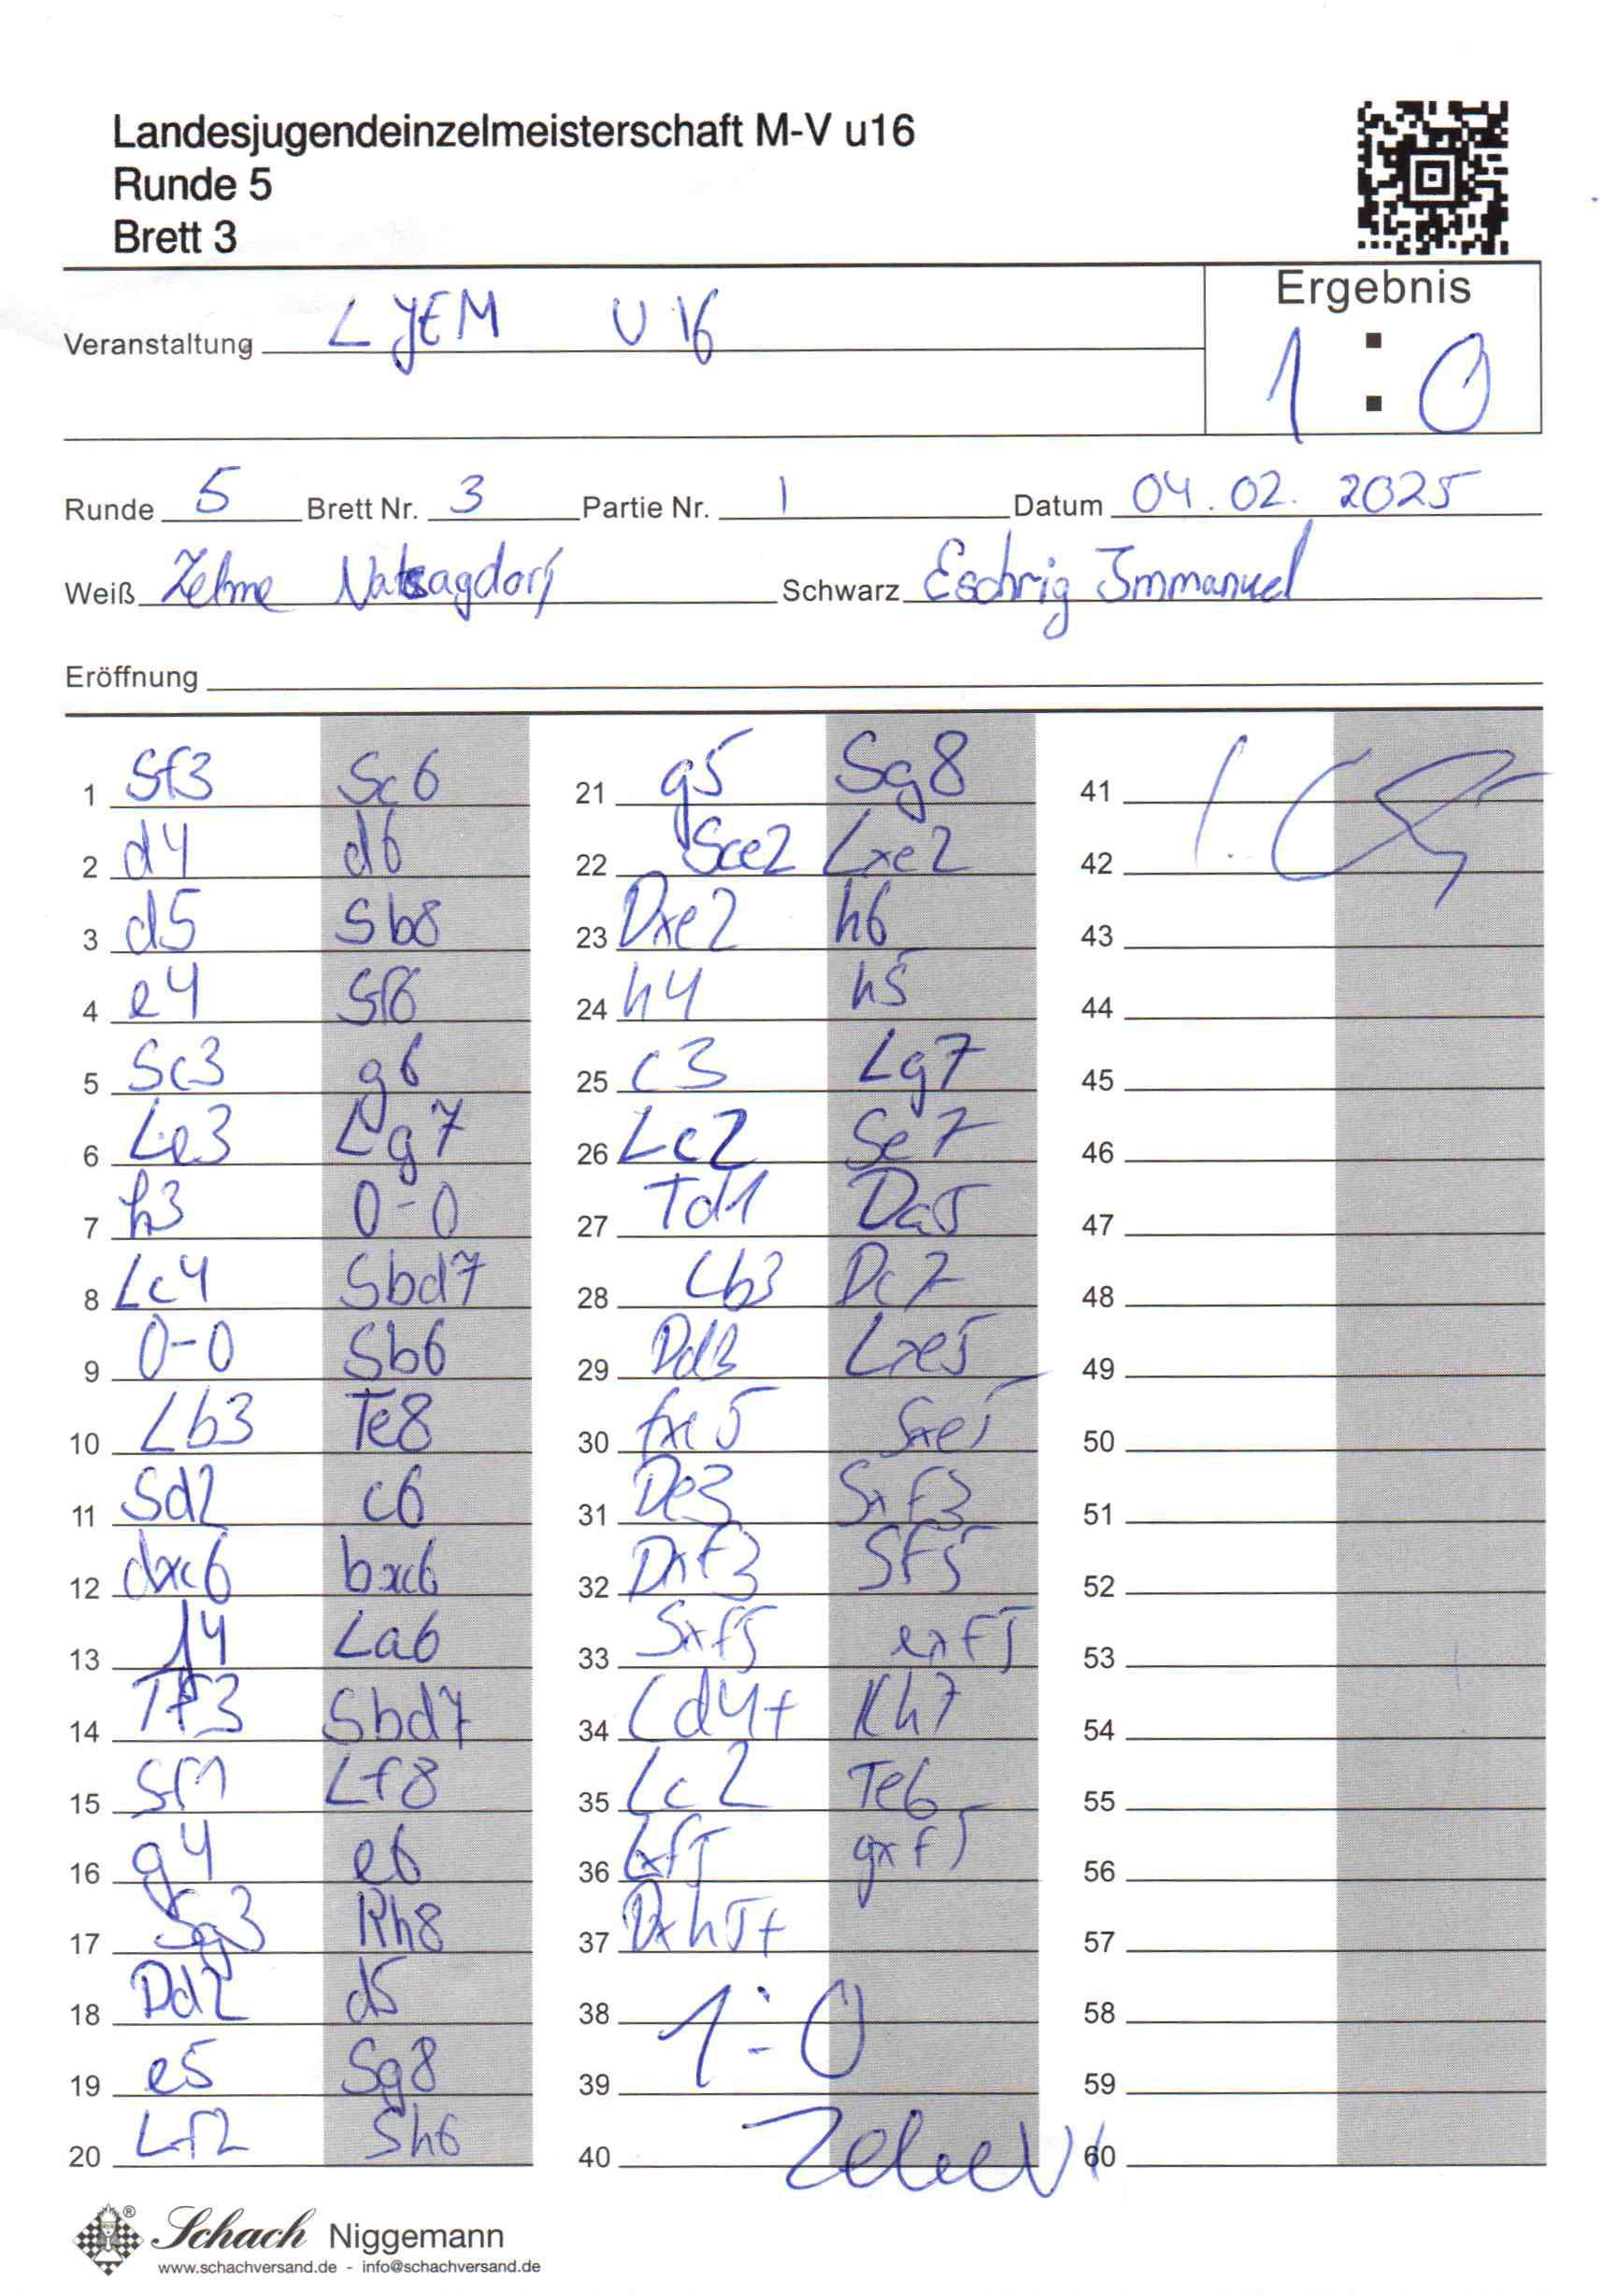 Landesjugendeinzelmeisterschaft M-V u16
Runde 5
Brett 3
Ergebnis
1 : 0
Veranstaltung LJEM U16
Runde 5 Brett Nr. 3 Partie Nr. 1 Datum 04.02.2025
Weiß Zelme Natsagdorj Schwarz Eschrig Immanuel
Eröffnung
1 Sf3 Sc6
2 d4 d6
3 d5 Sb8
4 e4 Sf6
5 Sc3 g6
6 Le3 Lg7
7 h3 0-0
8 Lc4 Sbd7
9 0-0 Sb6
10 Lb3 Te8
11 Sd2 c6
12 dxc6 bxc6
13 f4 La6
14 Tf3 Sbd7
15 Sf1 Lf8
16 g4 e6
17 Sg3 Kh8
18 Dd2 d5
19 e5 Sg8
20 Lf2 Sh6
21 g5 Sg8
22 Sce2 Lxe2
23 Dxe2 h6
24 h4 h5
25 c3 Lg7
26 Lc2 Se7
27 Td1 Da5
28 Lb3 Dc7
29 Dd3 Lxe5
30 fxe5 Sxe5
31 De3 Sxf3
32 Dxf3 Sf5
33 Sxf5 exf5
34 Ld4+ Kh7
35 Lc2 Te6
36 Lxf5 gxf5
37 Dxh5+
38 1:0
39
40
41
42
43
44
45
46
47
48
49
50
51
52
53
54
55
56
57
58
59
60
Schach Niggemann
www.schachversand.de - info@schachversand.de